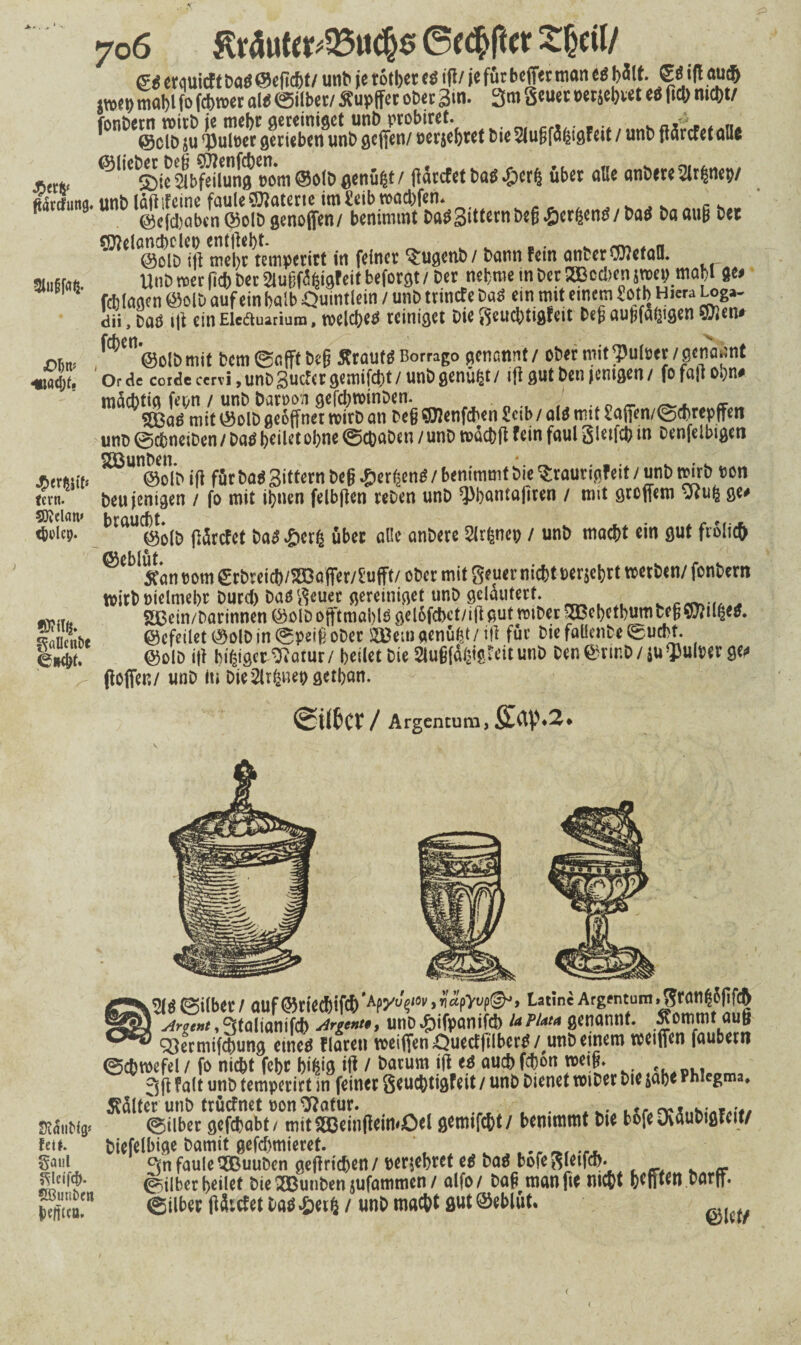 706 Kräuter-Buchs Sechster Theil/
Es erquickt das Gesicht/ und je röther es ist/ je für besser man es hält. Es ist auch
zwey mahl so schwer als Silber/ Kupffer oder Zin. Im Feuer verzehret es sich nicht/
sondern wird je mehr gereiniget und probiret.
Gold zu Pulver gerieben und gessen/ verzehret die Außsätzigkeit / und stärcket alle
Glieder deß Menschen.
Hertz-
stärckung.
Die Abfeilung vom Gold genützt/ stärcket das Hertz über alle andere Artzney/
und läst keine faule Materie im Leib wachsen.
Geschaben Gold genossen/ benimmt das Zittern deß Hertzens/ das da auß der
Melancholey entsteht.
Gold ist mehr temperirt in seiner Tugend/ dann kein ander Metall.
Außsatz.
Und wer sich der Außsätzigkeit besorgt/ der nehme in der Wochen zwey mahl ge-
schlagen Gold auf ein halb Quintlein / und trincke das ein mit einem Loth Hiera Loga-
dii, das ist ein Electuarium, welches reiniget die Feuchtigkeit deß außsätzigen Men-
schen.
Ohn-
macht.
Gold mit dem Safft deß Krauts Borrago genannt / oder mit Pulver / genannt
Or de corde cervi, und Zucker gemischt/ und genützt/ ist gut den jenigen/ so fast ohn-
mächtig seyn / und darvon geschwinden.
Was mit Gold geöffnet wird an deß Menschen Leib/ als mit Lassen/Schrepffen
und Schneiden/ das heilet ohne Schaden /und wächst kein faul Fleisch in denselbigen
Wunden.
Hertzzit-
tern.
Melan-
choley.
Gold ist für das Zittern deß Hertzens/ benimmt die Traurigkeit / und wird von
den jenigen / so mit ihnen selbsten reden und Phantasiren / mit grossem Nutz ge-
braucht.
Gold stärcket das Hertz über alle andere Artzney / und macht ein gut frölich
Geblüt.
Kan vom Erdreich/Wasser/Lufft/ oder mit Feuer nicht verzehrt werden/ sondern
wird vielmehr durch das Feuer gereiniget und geläutert.
Miltz.
Fallende
Sucht.
Wein/darinnen Gold offtmahls gelöschet/ist gut wider Wehethum deß Miltzes.
Gefeilet Gold in Speiß oder Wein genützt/ ist für die fallende Sucht.
Gold ist hitziger Natur/ heilet die Außsätzigkeit und den Grind/ zu Pulver ge-
stossen/ und in die Artzney gethan.
Silber / Argentum, Cap.2.
Als Silber / auf Griechisch Ἀργύριον, ἢ ἄργυρος, Latinè Argentum, Frantzösisch
Argent, Italianisch Argento, und Hispanisch la Plata genannt. Kommt auß
Vermischung eines klaren weissen Quecksilbers/ und einem weissen saubern
Schwefel/ so nicht sehr hitzig ist / darum ist es auch schön weiß.
Ist kalt und temperirt in seiner Feuchtigkeit/ und dienet wider die zähe Phlegma.
Kälter und trücknet von Natur.
Räudig-
keit.
Silber geschabt/ mit Weinstein-Oel gemischt/ benimmt die böse Räudigkeit/
dieselbige damit geschmieret.
Faul
Fleisch.
In faule Wuuden gestrichen/ verzehret es das böse Fleisch.
Wunden
hefften.
Silber heilet die Wunden zusammen/ also/ daß man sie nicht hefften darff.
Silber stärcket das Hertz / und macht gut Geblüt.
Glet/